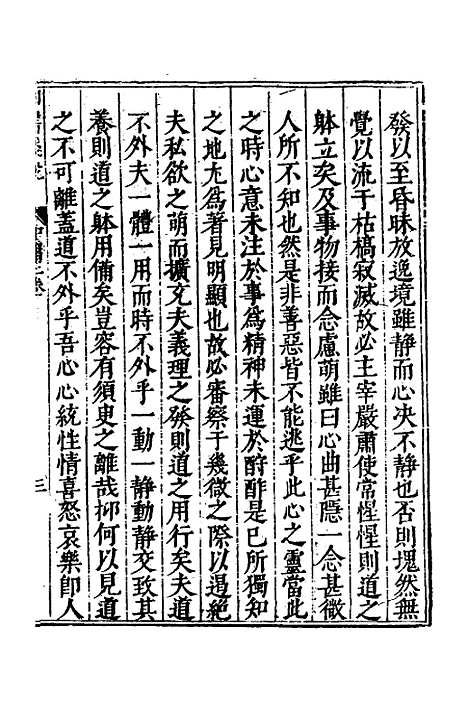 發以至昏昧放逸境雖靜而心决不靜也否則塊然無
覺以流于枯槁寂滅故必主宰嚴肅使常惺惺則道之
躰立矣及事物接而念慮萌雖曰心曲甚隱一念甚微
人所不知也然是非善惡皆不能逃乎此心之靈當此
之時心意未注於事爲精神未運於酧酢是已所獨知
之地尤爲著見明顯也故必審察于幾微之際以遏絶
夫私欲之萌而擴充夫義理之發則道之用行矣夫道
不外夫一體一用而時不外乎一動一靜動靜交致其
養則道之躰用備矣豈容有須臾之離哉抑何以見道
之不可離蓋道不外乎吾心心統性情喜怒哀樂卽人
三